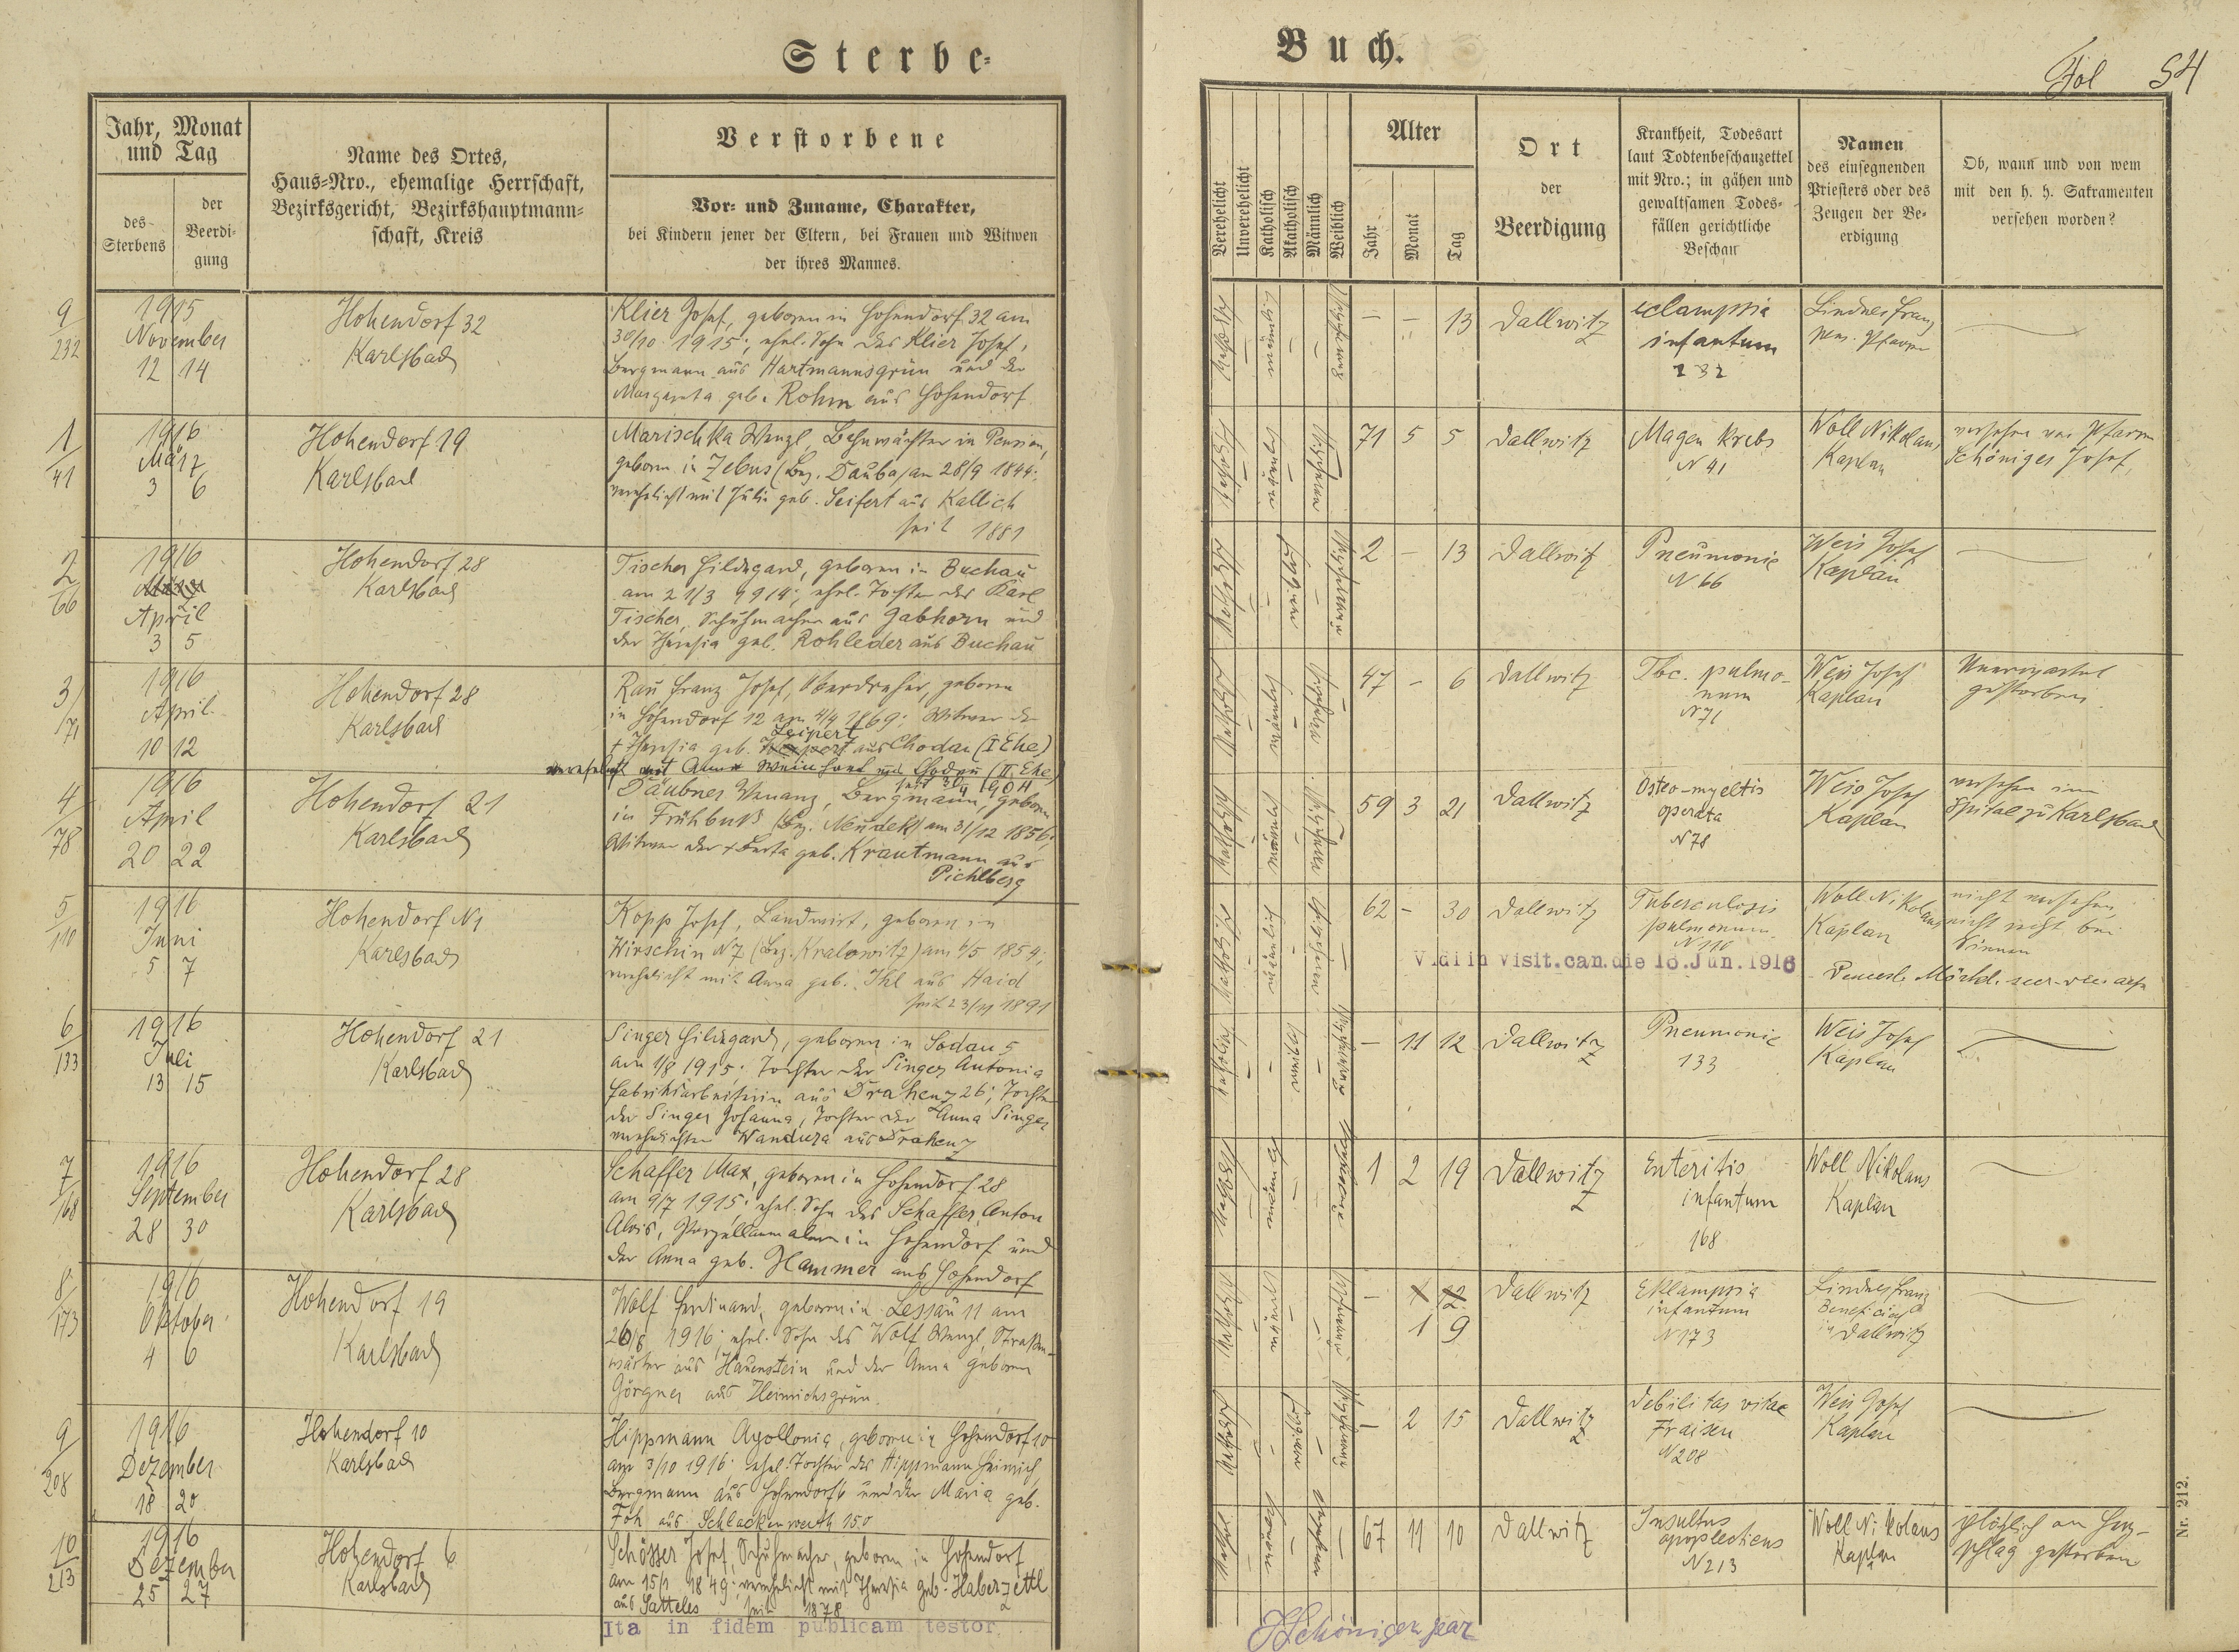 Sterbe-
Buch.
Fol 54
Jahr, Monat
und Tag
des
Sterbens
der
Beerdi-
gung
Name des Ortes,
Haus-Nro., ehemalige Herrschaft,
Bezirksgericht, Bezirkshauptmann-
schaft, Kreis
Verstorbene
Vor- und Zuname, Charakter,
bei Kindern jener der Eltern, bei Frauen und Witwen
der ihres Mannes.
Verehelicht
Unverehelicht
Katholisch
Akatholisch
Männlich
Weiblich
Alter
Jahr
Monat
Tag
Ort
der
Beerdigung
Krankheit, Todesart
laut Todtenbeschauzettel
mit Nro.; in gähen und
gewaltsamen Todes-
fällen gerichtliche
Beschau
Namen
des einsegnenden
Priesters oder des
Zeugen der Be-
erdigung
Ob, wann und von wem
mit den h. h. Sakramenten
versehen worden?
9
232
1915
November
12 14
Hohendorf 32
Karlsbad
Klier Josef, geboren in Hohendorf 32 am
30/10 1915; ehel. Sohn des Klier Josef,
Bergmann aus Hartmannsgrün und der
Margareta geb. Rohm aus Hohendorf
- - 13
Dallwitz
eclampsia
infantum
232
Lindner Franz
pens. Pfarrer
1
41
1916
März
3 6
Hohendorf 19
Karlsbad
Marischka Wenzl, Bahnwächter in Pension,
geboren in Zebus (Bez. Dauba) am 28/9 1844;
verehelicht mit Julie geb. Seifert aus Kallich
seit 1881
71 5 5
Dallwitz
Magen Krebs
N 41
Woll Nikolaus
Kaplan
versehen von Pfarrer
Schöniger Josef,
2
66
1916
April
3 5
Hohendorf 28
Karlsbad
Tischer Hildegard, geboren in Buchau
am 21/3 1914; ehel. Tochter des Karl
Tischer, Schuhmacher aus Gabhorn und
der Theresia geb. Rohleder aus Buchau
2 - 13
Dallwitz
Pneumonie
N 66
Weis Josef
Kaplan
3
71
1916
April
10 12
Hohendorf 28
Karlsbad
Rau Franz Josef, Oberdreher, geboren
in Hohendorf 12 am 4/4 1869; Witwer der
Seipert
+ Theresia geb. aus Chodau (I Ehe)
verehelicht mit Anna aus Chodau (II. Ehe)
47 - 6
Dallwitz
Tbc. pulmo-
num
N 71
Weis Josef
Kaplan
Unerwartet
gestorben
4
78
1916
April
20 22
Hohendorf 21
Karlsbad
Däubner Venanz, Bergmann, geboren
in Frühbuß (Bez. Neudek) am 31/12 1856;
Witwer der + Berta geb. Krautmann aus
Pichlberg
59 3 21
Dallwitz
Osteo-myeltis
operata
N 78
Weis Josef
Kaplan
versehen im
Spital zu Karlsbad
5
110
1916
Juni
5 7
Hohendorf N 1
Karlsbad
Kopp Josef, Landwirt, geboren in
Wirschin N 7 (Bez. Kralowitz) am 6/5 1854;
verehelicht mit Anna geb. Ihl aus Haid
seit 23/11 1891
62 - 30
Dallwitz
Tuberculosis
pulmonum
N 110
Woll Nikolaus
Kaplan
nicht versehen,
nicht bei
Sinnen
Vidi in visit. can. die 16. Jun. 1916
6
133
1916
Juli
13 15
Hohendorf 21
Karlsbad
Singer Hildegard, geboren in Sodau 5
am 1/8 1915; Tochter der Singer Antonia
Fabriksarbeiterin aus Drahenz 26; Tochter
der Singer Johanna, Tochter der Anna Singer
verehelichten Wandura aus Drahenz
- 11 12
Dallwitz
Pneumonie
133
Weis Josef
Kaplan
7
168
1916
September
28 30
Hohendorf 28
Karlsbad
Schaffer Max, geboren in Hohendorf 28
am 9/7 1915; ehel. Sohn des Schaffer Anton
Alois, Porzellanmaler in Hohendorf und
der Anna geb. Hammer aus Hohendorf
1 2 19
Dallwitz
Enteritis
infantum
168
Woll Nikolaus
Kaplan
8
173
1916
Oktober
4 6
Hohendorf 19
Karlsbad
Wolf Ferdinand, geboren in Lessau 11 am
26/8 1916; ehel. Sohn des Wolf Wenzl, Straßen-
wärter aus Hauenstein und der Anna geboren
Görgner aus Heinrichsgrün
- 1 12
1 9
Dallwitz
Eklampsia
infantum
N 173
Lindner Franz
Beneficiat
in Dallwitz
9
208
1916
Dezember
18 20
Hohendorf 10
Karlsbad
Hippmann Apollonia, geboren in Hohendorf 10
am 3/10 1916; ehel. Tochter des Hippmann Heinrich,
Bergmann aus Hohendorf 6 und der Maria geb.
Foh aus Schlackenwerth 150
- 2 15
Dallwitz
Debilitas vitae
Fraisen
N 208
Weis Josef
Kaplan
10
213
1916
Dezember
25 27
Hohendorf 6
Karlsbad
Schösser Josef, Schuhmacher, geboren in Hohendorf
am 15/1 1849; verehelicht mit Theresia geb. Haberzettl
aus Satteles seit 1878
67 11 10
Dallwitz
Insultus
apoplecticus
N 213
Woll Nikolaus
Kaplan
plötzlich an Herz-
schlag gestorben
Ita in fidem publicam testor
Nr. 212.